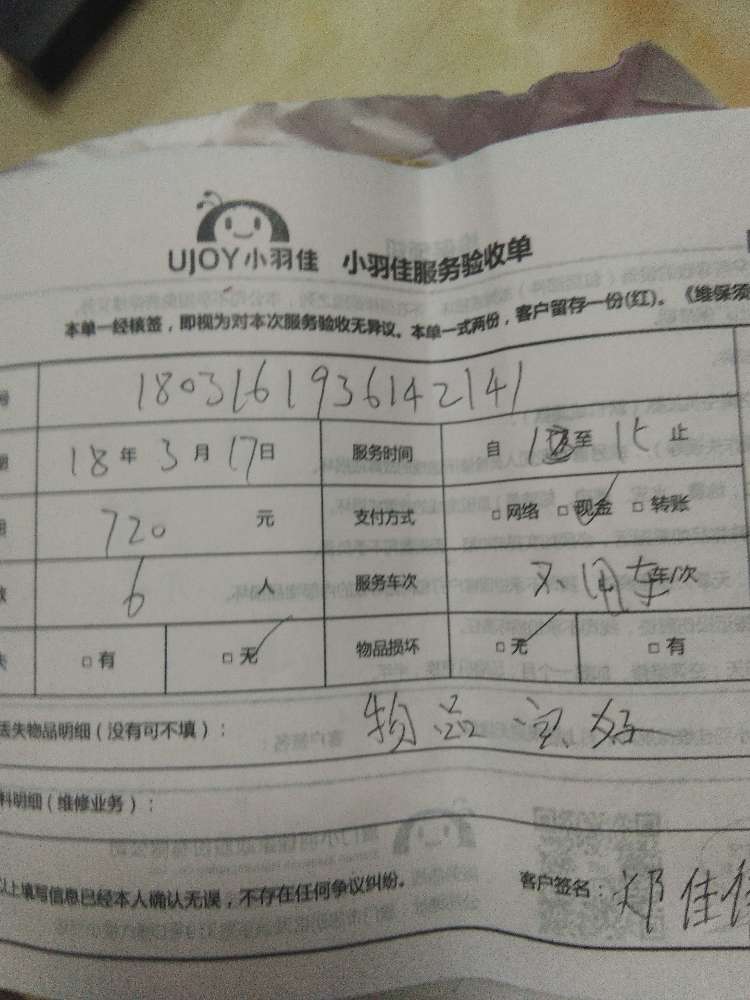 UJOY小羽佳 小羽佳服务验收单
本单一经核签，即视为对本次服务验收无异议。本单一式两份，客户留存一份(红)。《维保须
号 1803161936142141
期 18年3月17日 服务时间 自 至 止
720 元 支付方式 □网络 □现金 □转账
数 6 人 服务车次 不用车 车/次
失 □有 □无 物品损坏 □无 □有
丢失物品明细（没有可不填）： 物品完好
料明细（维修业务）：
以上填写信息已经本人确认无误，不存在任何争议纠纷。 客户签名：邓佳